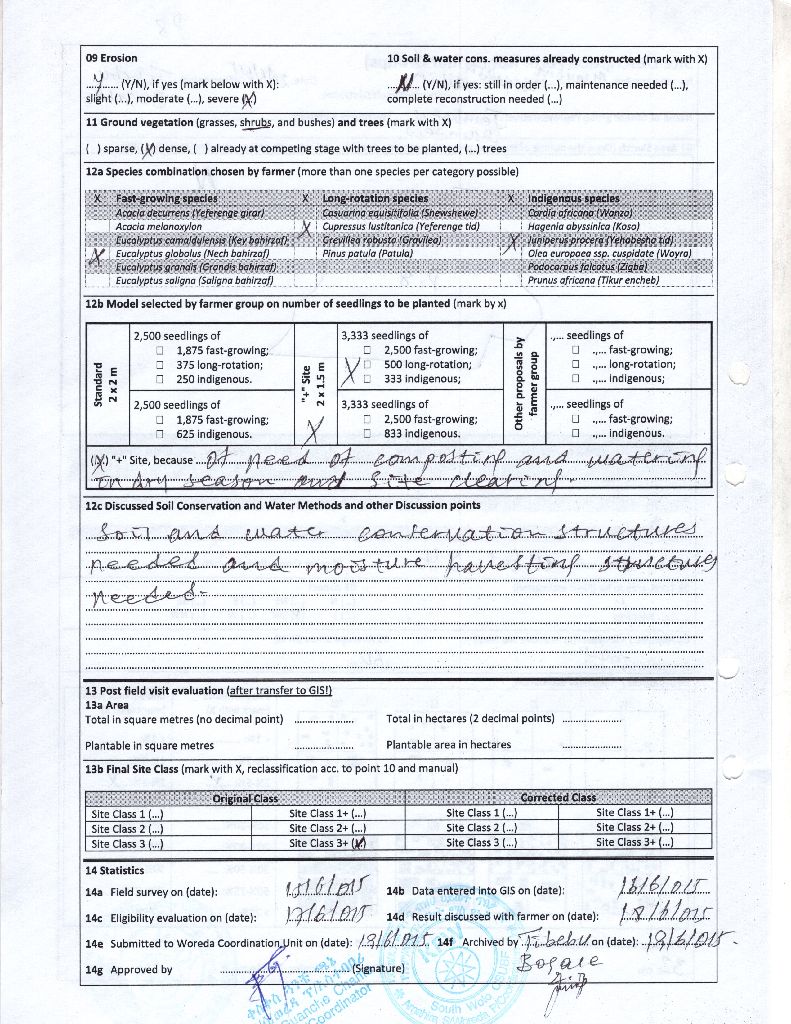 09 Erosion
10 Soil & water cons. measures already constructed (mark with X)
....Y..... (Y/N), if yes (mark below with X):
...N.... (Y/N), if yes: still in order (...), maintenance needed (...),
slight (...), moderate (...), severe (X)
complete reconstruction needed (...)
11 Ground vegetation (grasses, shrubs, and bushes) and trees (mark with X)
( ) sparse, (X) dense, ( ) already at competing stage with trees to be planted, (...) trees
12a Species combination chosen by farmer (more than one species per category possible)
X Fast-growing species X Long-rotation species X Indigenous species
Acacia decurrens (Yeferenge girar) Casuarina equisitifolia (Shewshewe) Cordia africana (Wanza)
Acacia melanoxylon X Cupressus lustitanica (Yeferenge tid) Hagenia abyssinica (Koso)
Eucalyptus camaldulensis (Key bahirzaf) Grevillea robusta (Gravilea) X Juniperus procera (Yehabesha tid)
X Eucalyptus globulus (Nech bahirzaf) Pinus patula (Patula) Olea europaea ssp. cuspidate (Woyra)
Eucalyptus grandis (Grandis bahirzaf) Podocarpus falcatus (Zigba)
Eucalyptus saligna (Saligna bahirzaf) Prunus africana (Tikur encheb)
12b Model selected by farmer group on number of seedlings to be planted (mark by x)
Standard
2 x 2 m
2,500 seedlings of
☐ 1,875 fast-growing;
☐ 375 long-rotation;
☐ 250 indigenous.
2,500 seedlings of
☐ 1,875 fast-growing;
☐ 625 indigenous.
"+" Site
2 x 1.5 m
X
3,333 seedlings of
☐ 2,500 fast-growing;
X ☐ 500 long-rotation;
☐ 333 indigenous;
3,333 seedlings of
☐ 2,500 fast-growing;
☐ 833 indigenous.
Other proposals by
farmer group
.,... seedlings of
☐ .,... fast-growing;
☐ .,... long-rotation;
☐ .,... indigenous;
.,... seedlings of
☐ .,... fast-growing;
☐ .,... indigenous.
(X) "+" Site, because of need of composting and watering
in dry season and site clearing.
12c Discussed Soil Conservation and Water Methods and other Discussion points
Soil and water conservation structures
needed and moisture harvesting structures
needed.
13 Post field visit evaluation (after transfer to GIS!)
13a Area
Total in square metres (no decimal point) .....................
Total in hectares (2 decimal points) .....................
Plantable in square metres .....................
Plantable area in hectares .....................
13b Final Site Class (mark with X, reclassification acc. to point 10 and manual)
Original Class Corrected Class
Site Class 1 (...) Site Class 1+ (...) Site Class 1 (...) Site Class 1+ (...)
Site Class 2 (...) Site Class 2+ (...) Site Class 2 (...) Site Class 2+ (...)
Site Class 3 (...) Site Class 3+ (X) Site Class 3 (...) Site Class 3+ (...)
14 Statistics
14a Field survey on (date): 15/6/015
14b Data entered into GIS on (date): 16/6/015
14c Eligibility evaluation on (date): 17/6/015
14d Result discussed with farmer on (date): 18/6/015
14e Submitted to Woreda Coordination Unit on (date): 19/6/015 14f Archived by Tibebu on (date): 19/6/015.
Bogale
14g Approved by ........................................ (Signature)
Coordinator
South Wolo